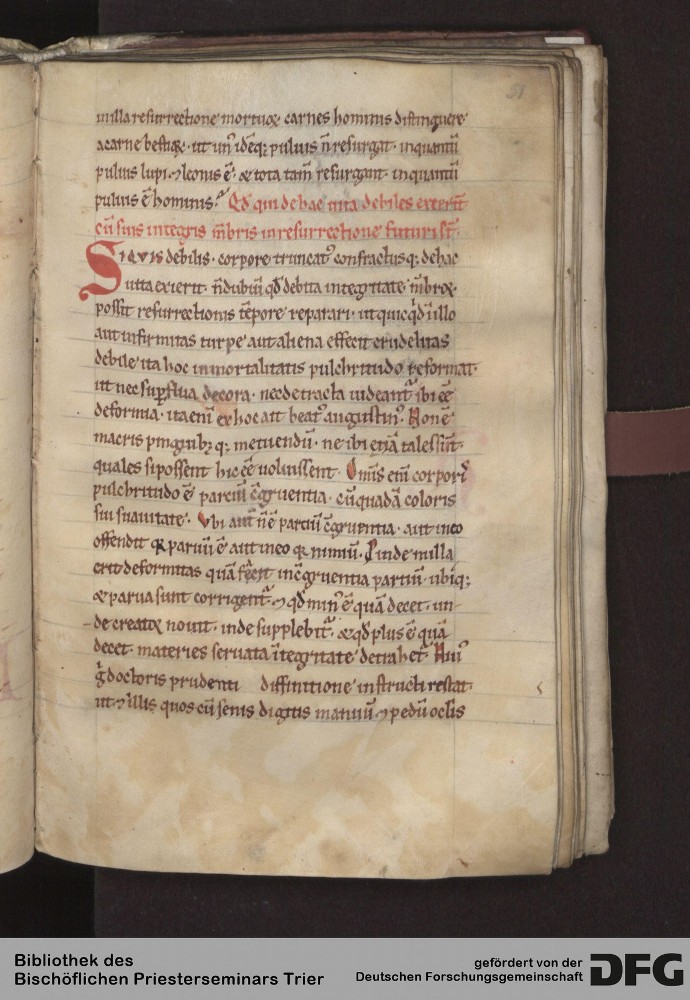 51
in illa resurrectione mortuoꝝ carnes hominis distinguere
a carne bestiæ · ut un᷒ idēq; puluis n̄ resurgat · inquantū
puluis lupi · ⁊ leonis ē · & tota tam̄ resurgant · inquantū
puluis ē hominis · Qđ qui de hac uita debiles exierīt
cū suis integris mēbris in resurrectione futuri sīt ·
Siquis debilis · corpore truncat᷒ confractusq; de hac
uita exierit · n̄ dubiū qđ debita integritate mēbroꝝ
possit resurrectionis tēpore reparari · ut quicqđ in illo
aut infirmitas turpe aut aliena effecit crudelitas
debile ita hoc inmortalitatis pulchritudo reformat ·
ut nec suꝑflua decora · nec detracta uideant᷑ ibi eē
deformia · ita enī ex hoc ait beat᷒ augustin᷒ · Non ē
macris pinguib; q; metuendū · ne ibi etiā tales sint ·
quales si possent hic eē uoluissent · Omīs enī corporis
pulchritudo ē partiū c̄gruentia · cū quadā coloris
sui suauitate · Vbi aut̄ n̄ ē partiū c̄gruentia · aut ideo
offendit qꝛ paruū ē aut ideo qꝛ nimiū · Proinde nulla
erit deformitas quā facit inc̄gruentia partiū · ubi q;
& parua sunt corrigent᷑ · ⁊ qđ min᷒ ē quā decet · un-
de creator nouit · inde supplebit᷑ · & qđ plus ē quā
decet · materies seruata ītegritate detrahet᷑ · Hui᷒
ḡ doctoris prudenti diffinitione instructi restat ·
ut ⁊ illis quos cū senis digitis manuū ⁊ pedū ocl̄is
Bibliothek des
Bischöflichen Priesterseminars Trier
gefördert von der
Deutschen Forschungsgemeinschaft
DFG